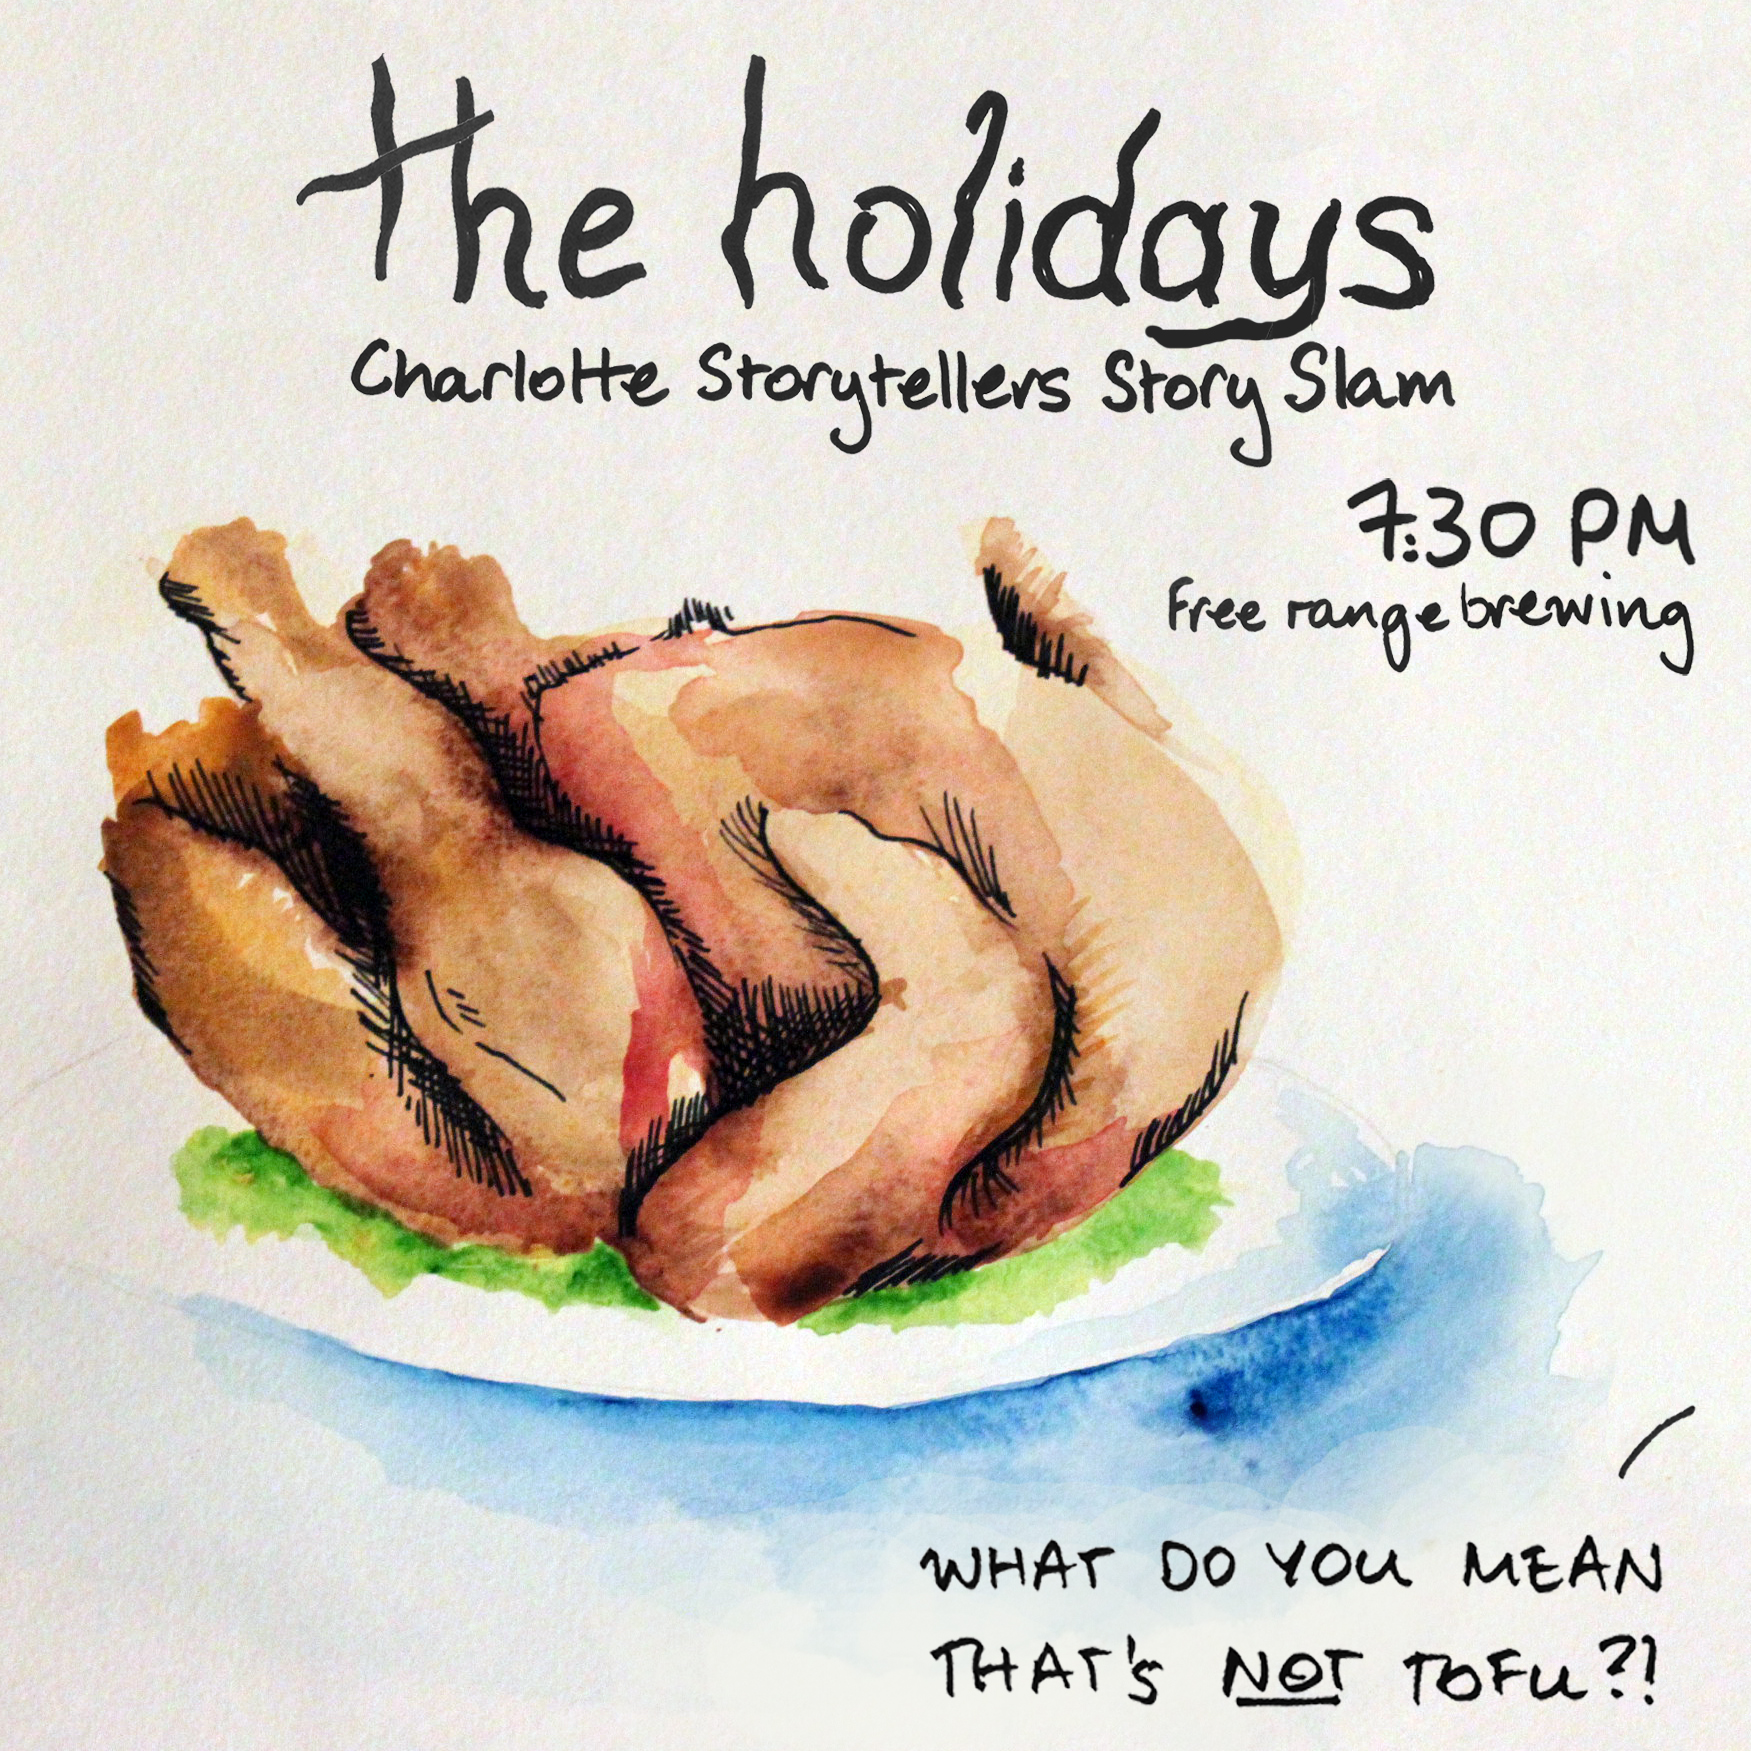 the holidays
Charlotte Storytellers Story Slam
7:30 PM
Free range brewing
WHAT DO YOU MEAN
THAT'S NOT TOFU?!